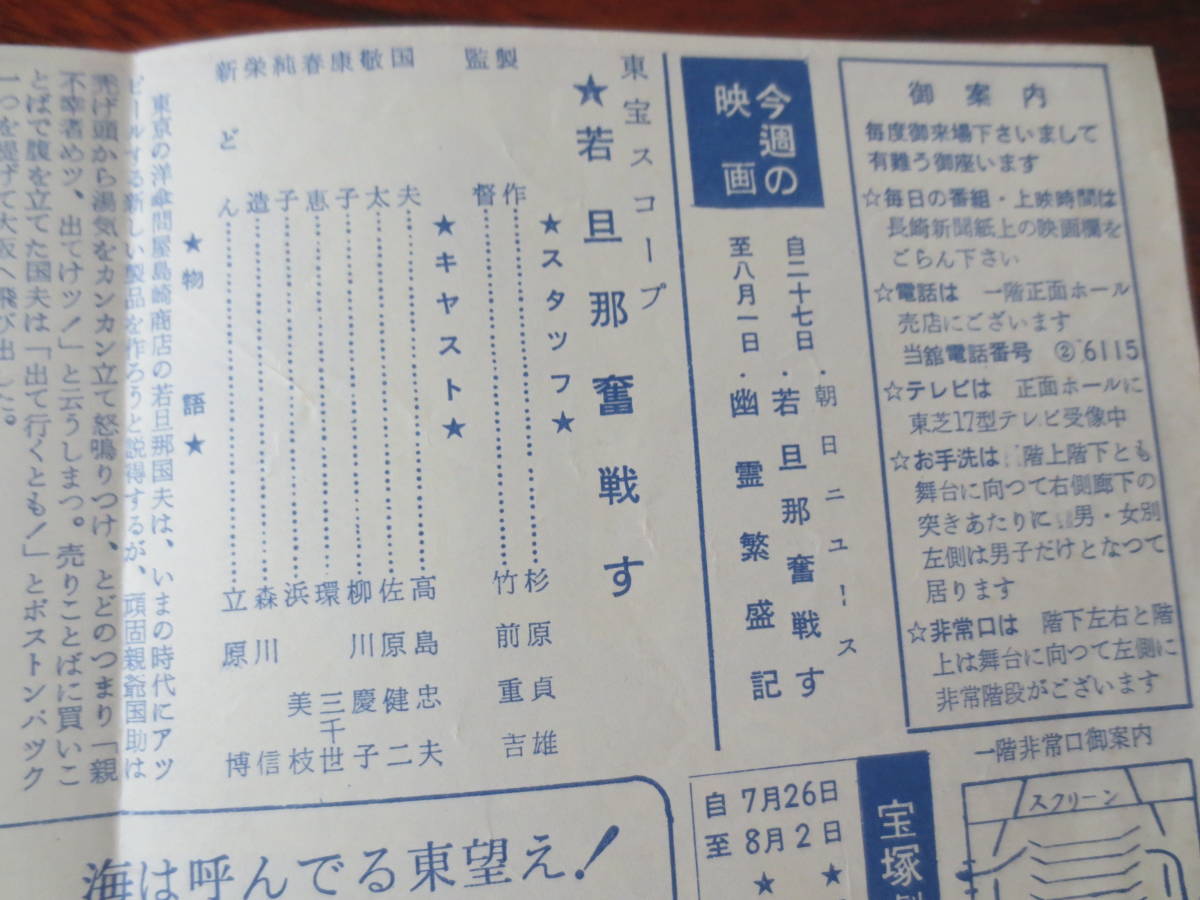 御案内
毎度御来場下さいまして
有難う御座います
☆毎日の番組・上映時間は
長崎新聞紙上の映画欄を
ごらん下さい
☆電話は 一階正面ホール
売店にございます
当館電話番号 ②6115
☆テレビは 正面ホールに
東芝17型テレビ受像中
☆お手洗は 階上階下とも
舞台に向つて右側廊下の
突きあたりに 男・女別
左側は男子だけとなつて
居ります
☆非常口は 階下左右と階
上は舞台に向つて左側に
非常階段がございます
今週の
映画
・朝日ニュース
自二十七日・若旦那奮戦す
至八月一日・幽霊繁盛記
東宝スコープ
★若旦那奮戦す
★スタッフ★
製作……杉原貞雄
監督……竹前重吉
★キヤスト★
国夫……高島忠夫
敬太……佐原健二
康子……柳川慶子
春恵……環三千世
純子……浜美枝
栄造……森川信
新どん……立原博
★物語★
東京の洋傘問屋島崎商店の若旦那国夫は、いまの時代にアツ
ピールする新しい製品を作ろうと説得するが、頑固親爺国助は
禿げ頭から湯気をカンカン立て怒鳴りつけ、とどのつまり「親
不幸者めツ、出てけツ!」と云うしまつ。売りことばに買いこ
とばで腹を立てた国夫は「出て行くとも!」とボストンバツク
一つを提げて大阪へ飛び出した。
一階非常口御案内
スクリーン
宝塚
自7月26日
至8月2日
★
★
海は呼んでる東望え!